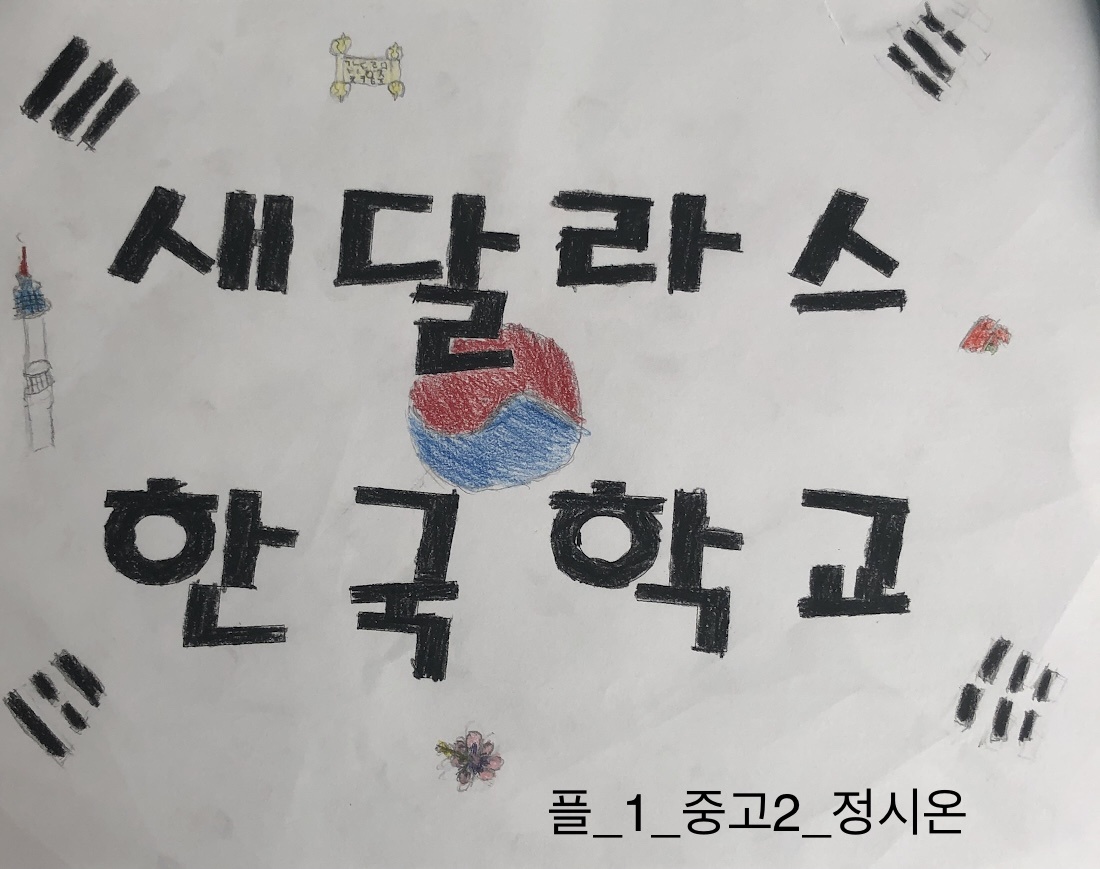 새달라스
한국학교
플_1_중고2_정시온